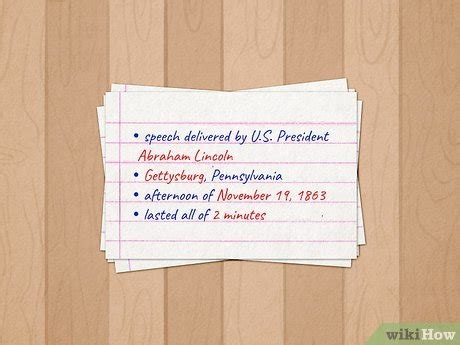 • speech delivered by U.S. President
Abraham Lincoln
• Gettysburg, Pennsylvania
• afternoon of November 19, 1863
• lasted all of 2 minutes
wikiHow